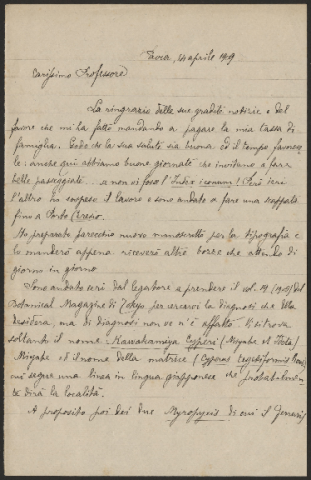 Pavia, 24 aprile 1909
Carissimo Professore
La ringrazio delle sue gradite notizie e del
favore che mi ha fatto mandando a pagare la mia tassa di
famiglia. Godo che la sua salute sia buona ed il tempo favorevo-
le: anche qui abbiamo buone giornate che invitano a fare
belle passeggiate ... a non vi foss'l'Index iconum! Però ieri
l'altro ho sospeso il lavoro e sono andato a fare una scappata
fino a Ponto
Ho preparato parecchio nuovo manoscritto per la tipografia e
lo manderò appena riceverò altre bozze che attendo di
giorno in giorno
Sono andato ieri dal legatore a prendere il vol. 19 (1905) del
Botanical Magazine di Tokyo per cercarvi la diagnosi che Ella
desidera, ma di diagnosi non ve n'è affatto. Vi si trova
soltanto il nome Kawakamiya Cyperi (Miyabe et Ideta)
Miyabe ed il nome della matrice (Cyperus
cui segue una linea in lingua giapponese che probabilmen-
te dirà la località.
A proposito poi dei due Myropyxis di cui I Generis